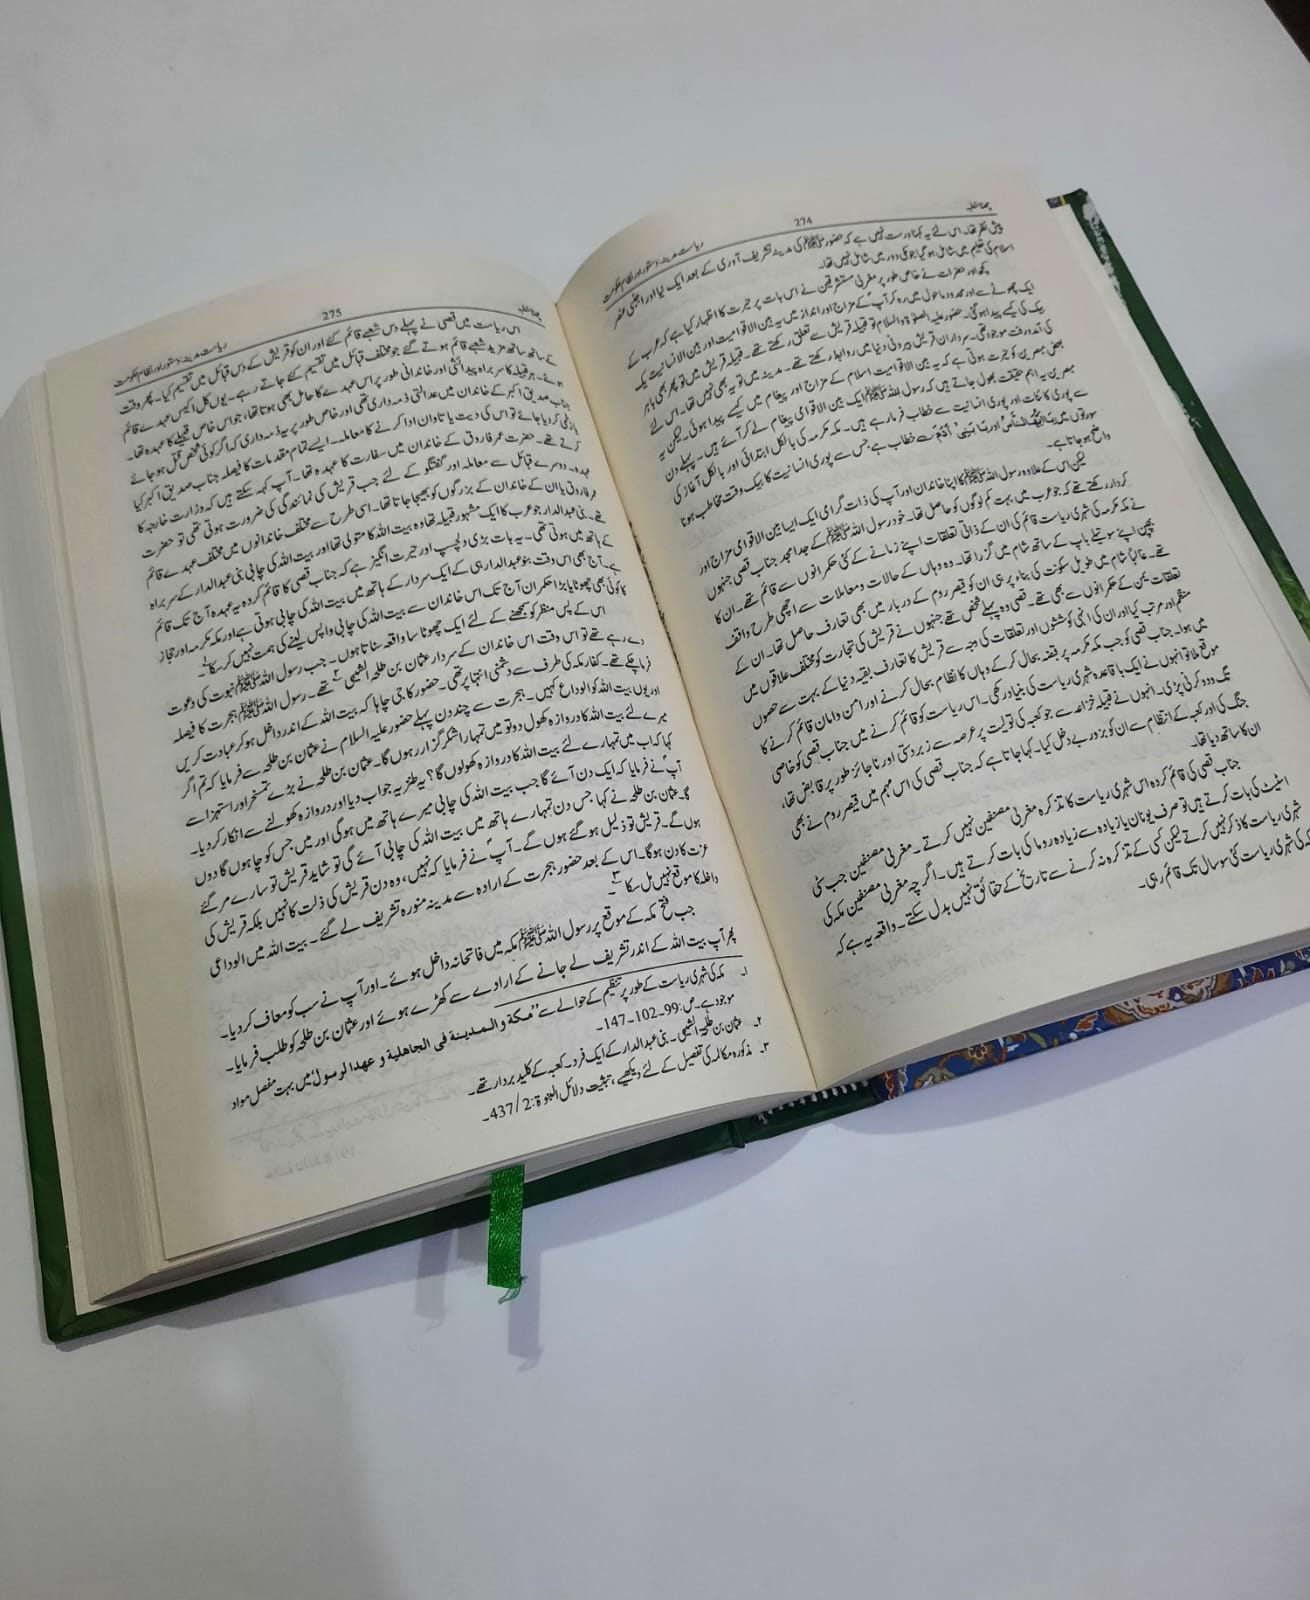 چھٹا خطبہ
274
ریاست مدینہ: دستور اور نظام حکومت
پیش نظر تھا۔ اس لئے یہ کہنا درست نہیں ہے کہ حضور ﷺ کی مدینہ تشریف آوری کے بعد ایک نیا اور اجنبی عنصر
اسلام کی تعلیم میں شامل ہو گیا جو مکی دور میں شامل نہیں تھا۔
کچھ اور حضرات نے خاص طور پر مغربی مستشرقین نے اس بات پر حیرت کا اظہار کیا ہے کہ عرب کے
ایک چھوٹے سے اور محدود ماحول میں رہ کر آپؐ کے مزاج اور انداز میں یہ بین الاقوامیت اور بین الانسانیت یک
بیک کیسے پیدا ہو گئی۔ حضور علیہ الصلوٰۃ والسلام تو قبیلہ قریش سے تعلق رکھتے تھے۔ قبیلہ قریش میں تو پھر بھی باہر
کی آمد و رفت موجود تھی۔ سرداران قریش بیرونی دنیا میں روابط رکھتے تھے۔ مدینہ میں تو یہ بھی نہیں تھا۔ اس لئے
بعض مبصرین کو حیرت ہوتی ہے کہ یہ بین الاقوامیت اسلام کے مزاج اور پیغام میں کیسے پیدا ہوئی۔ لیکن یہ
مبصرین یہ اہم حقیقت بھول جاتے ہیں کہ رسول اللہ ﷺ ایک بین الاقوامی پیغام لے کر آئے ہیں۔ پہلے دن
سے پوری کائنات اور پوری انسانیت سے خطاب فرما رہے ہیں۔ مکہ مکرمہ کی بالکل ابتدائی اور بالکل آغاز کی
سورتوں میں یا ایھا الناس اور یا بنی آدم سے خطاب ہے، جس سے پوری انسانیت کا بیک وقت مخاطب ہونا
واضح ہو جاتا ہے۔
لیکن اس کے علاوہ رسول اللہ ﷺ کا اپنا خاندان اور آپ کی ذات گرامی ایک ایسا بین الاقوامی مزاج اور
کردار رکھتے تھے کہ جو عرب میں بہت کم لوگوں کو حاصل تھا۔ خود رسول اللہ ﷺ کے جدامجد جناب قصی جنہوں
نے مکہ مکرمہ کی شہری ریاست قائم کی ان کے ذاتی تعلقات اپنے زمانے کے کئی حکمرانوں سے قائم تھے۔ ان کا
بچپن اپنے سوتیلے باپ کے ساتھ شام میں گزرا تھا۔ وہ وہاں کے حالات و معاملات سے اچھی طرح واقف
تھے۔ غالباً شام میں طویل سکونت کی بناء پر ہی ان کو قیصر روم کے دربار میں بھی تعارف حاصل تھا۔ ان کے
تعلقات یمن کے حکمرانوں سے بھی تھے۔ قصی وہ پہلے شخص تھے جنہوں نے قریش کی تجارت کو مختلف علاقوں میں
منظم اور مرتب کیا اور ان کی انہی کوششوں اور تعلقات کی وجہ سے قریش کا تعارف بقیہ دنیا کے بہت سے حصوں
میں ہوا۔ جناب قصی کو جب مکہ مکرمہ پر قبضہ بحال کر کے وہاں کا نظام بحال کرنے اور امن و امان قائم کرنے کا
موقع ملا تو انہوں نے ایک باقاعدہ شہری ریاست کی بنیاد رکھی۔ اس ریاست کو قائم کرنے میں جناب قصی کو خاصی
تگ و دو کرنی پڑی۔ انہوں نے قبیلہ خزاعہ سے جو کعبہ کی تولیت پر عرصہ سے زبردستی اور ناجائز طور پر قابض تھا،
جنگ کی اور کعبہ کے انتظام سے ان کو بزور بے دخل کیا۔ کہا جاتا ہے کہ جناب قصی کی اس مہم میں قیصر روم نے بھی
ان کا ساتھ دیا تھا۔
جناب قصی کی قائم کردہ اس شہری ریاست کا تذکرہ مغربی مصنفین نہیں کرتے۔ مغربی مصنفین جب سٹی
اسٹیٹ کی بات کرتے ہیں تو صرف یونان یا زیادہ سے زیادہ روما کی بات کرتے ہیں۔ اگر چہ مغربی مصنفین مکہ کی
شہری ریاست کا ذکر نہیں کرتے لیکن کسی کے تذکرہ نہ کرنے سے تاریخ کے حقائق نہیں بدل سکتے۔ واقعہ یہ ہے کہ
کی شہری ریاست کئی سو سال تک قائم رہی۔
چھٹا خطبہ
275
ریاست مدینہ: دستور اور نظام حکومت
اس ریاست میں قصی نے پہلے دس شعبے قائم کئے اور ان کو قریش کے دس قبائل میں تقسیم کیا۔ پھر وقت
کے ساتھ ساتھ مزید شعبے قائم ہوتے گئے جو مختلف قبائل میں تقسیم کئے جاتے رہے۔ یوں کل اکیس عہدے قائم
ہوئے۔ ہر قبیلہ کا سربراہ پیدائشی اور خاندانی طور پر اس عہدے کا حامل بھی ہوتا تھا، جو اس خاص قبیلہ کا عہدہ تھا۔
جناب صدیق اکبر کے خاندان میں عدالتی ذمہ داری تھی اور خاص طور پر یہ ذمہ داری کہ اگر کوئی شخص قتل ہو جائے
یا زخمی کر دیا جائے تو اس کی دیت یا تاوان ادا کرنے کا معاملہ۔ ایسے تمام مقدمات کا فیصلہ جناب صدیق اکبر کیا
کرتے تھے۔ حضرت عمر فاروق کے خاندان میں سفارت کا عہدہ تھا۔ آپ کہہ سکتے ہیں کہ وزارت خارجہ کا
عہدہ۔ دوسرے قبائل سے معاملہ اور گفتگو کے لئے جب قریش کی نمائندگی کی ضرورت ہوتی تھی تو حضرت
عمر فاروق یا ان کے خاندان کے بزرگوں کو بھیجا جاتا تھا۔ اسی طرح سے مختلف خاندانوں میں مختلف عہدے قائم
تھے۔ بنی عبدالدار جو عرب کا ایک مشہور قبیلہ تھا وہ بیت اللہ کا متولی تھا اور بیت اللہ کی چابی بنی عبدالدار کے سربراہ
کے ہاتھ میں ہوتی تھی۔ یہ بات بڑی دلچسپ اور حیرت انگیز ہے کہ جناب قصی کا قائم کردہ یہ عہدہ آج تک قائم
ہے۔ آج بھی اس وقت بنو عبدالدار ہی کے ایک سردار کے ہاتھ میں بیت اللہ کی چابی ہوتی ہے اور مکہ مکرمہ اور حجاز
کا کوئی بھی چھوٹا یا بڑا حکمران آج تک اس خاندان سے بیت اللہ کی چابی واپس لینے کی ہمت نہیں کر سکا۔۱
اس کے پس منظر کو سمجھنے کے لئے ایک چھوٹا سا واقعہ سناتا ہوں۔ جب رسول اللہ ﷺ نبوت کی دعوت
دے رہے تھے تو اس وقت اس خاندان کے سردار عثمان بن طلحہ الشیبی۲ تھے۔ رسول اللہ ﷺ ہجرت کا فیصلہ
فرما چکے تھے۔ کفار مکہ کی طرف سے دشمنی انتہا پر تھی۔ حضور کا جی چاہا کہ بیت اللہ کے اندر داخل ہو کر عبادت کریں
اور یوں بیت اللہ کو الوداع کہیں۔ ہجرت سے چند دن پہلے حضور علیہ السلام نے عثمان بن طلحہ سے فرمایا کہ تم اگر
میرے لئے بیت اللہ کا دروازہ کھول دو تو میں تمہارا شکر گزار رہوں گا۔ عثمان بن طلحہ نے بڑے تمسخر اور استہزا سے
کہا کہ اب میں تمہارے لئے بیت اللہ کا دروازہ کھولوں گا؟ یہ طنزیہ جواب دیا اور دروازہ کھولنے سے انکار کر دیا۔
آپؐ نے فرمایا کہ ایک دن آئے گا جب بیت اللہ کی چابی میرے ہاتھ میں ہوگی اور میں جس کو چاہوں گا دوں
گا۔ عثمان بن طلحہ نے کہا جس دن تمہارے ہاتھ میں بیت اللہ کی چابی آئے گی تو شاید قریش تو سارے مر گئے
ہوں گے۔ قریش تو ذلیل ہو گئے ہوں گے۔ آپؐ نے فرمایا کہ نہیں، وہ دن قریش کی ذلت کا نہیں بلکہ قریش کی
عزت کا دن ہوگا۔ اس کے بعد حضور ہجرت کے ارادہ سے مدینہ منورہ تشریف لے گئے۔ بیت اللہ میں الوداعی
داخلہ کا موقع نہیں مل سکا۔۳
جب فتح مکہ کے موقع پر رسول اللہ ﷺ مکہ میں فاتحانہ داخل ہوئے۔ اور آپ نے سب کو معاف کر دیا۔
پھر آپ بیت اللہ کے اندر تشریف لے جانے کے ارادے سے کھڑے ہوئے اور عثمان بن طلحہ کو طلب فرمایا۔
۱۔ مکہ کی شہری ریاست کے طور پر تنظیم کے حوالے سے "مکة و المدينة في الجاهلية و عهد الرسول" میں بہت مفصل مواد
موجود ہے۔ ص: 99-102-147۔
۲۔ عثمان بن طلحہ الشیبی۔ بنی عبدالدار کے ایک فرد۔ کعبہ کے کلید بردار تھے۔
۳۔ مذکورہ مکالمہ کی تفصیل کے لئے دیکھیے، تثبیت دلائل النبوۃ: 2/437۔